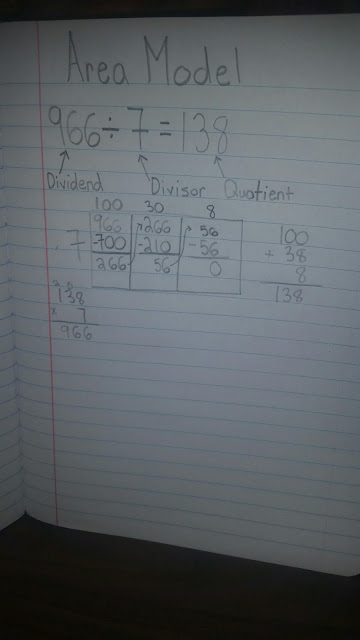 Area Model
966 ÷ 7 = 138
Dividend Divisor Quotient
100 30 8
7 966 266 56
-700 -210 -56
266 56 0
100
+ 38
8
138
138
x 7
966